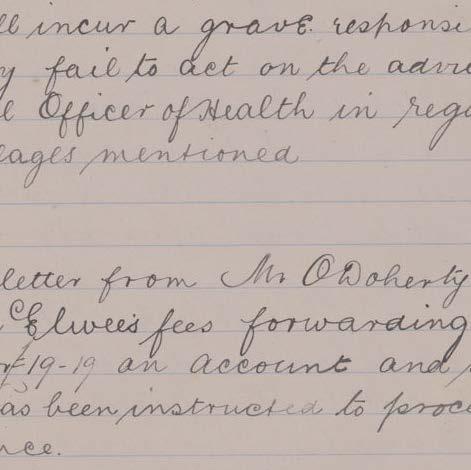 ll incur a grave responsi
y fail to act on the advi
l Officer of Health in rega
lages mentioned
letter from Mr O'Doherty
McElwee's fees forwarding
19-19 an account and
as been instructed to proce
nce.